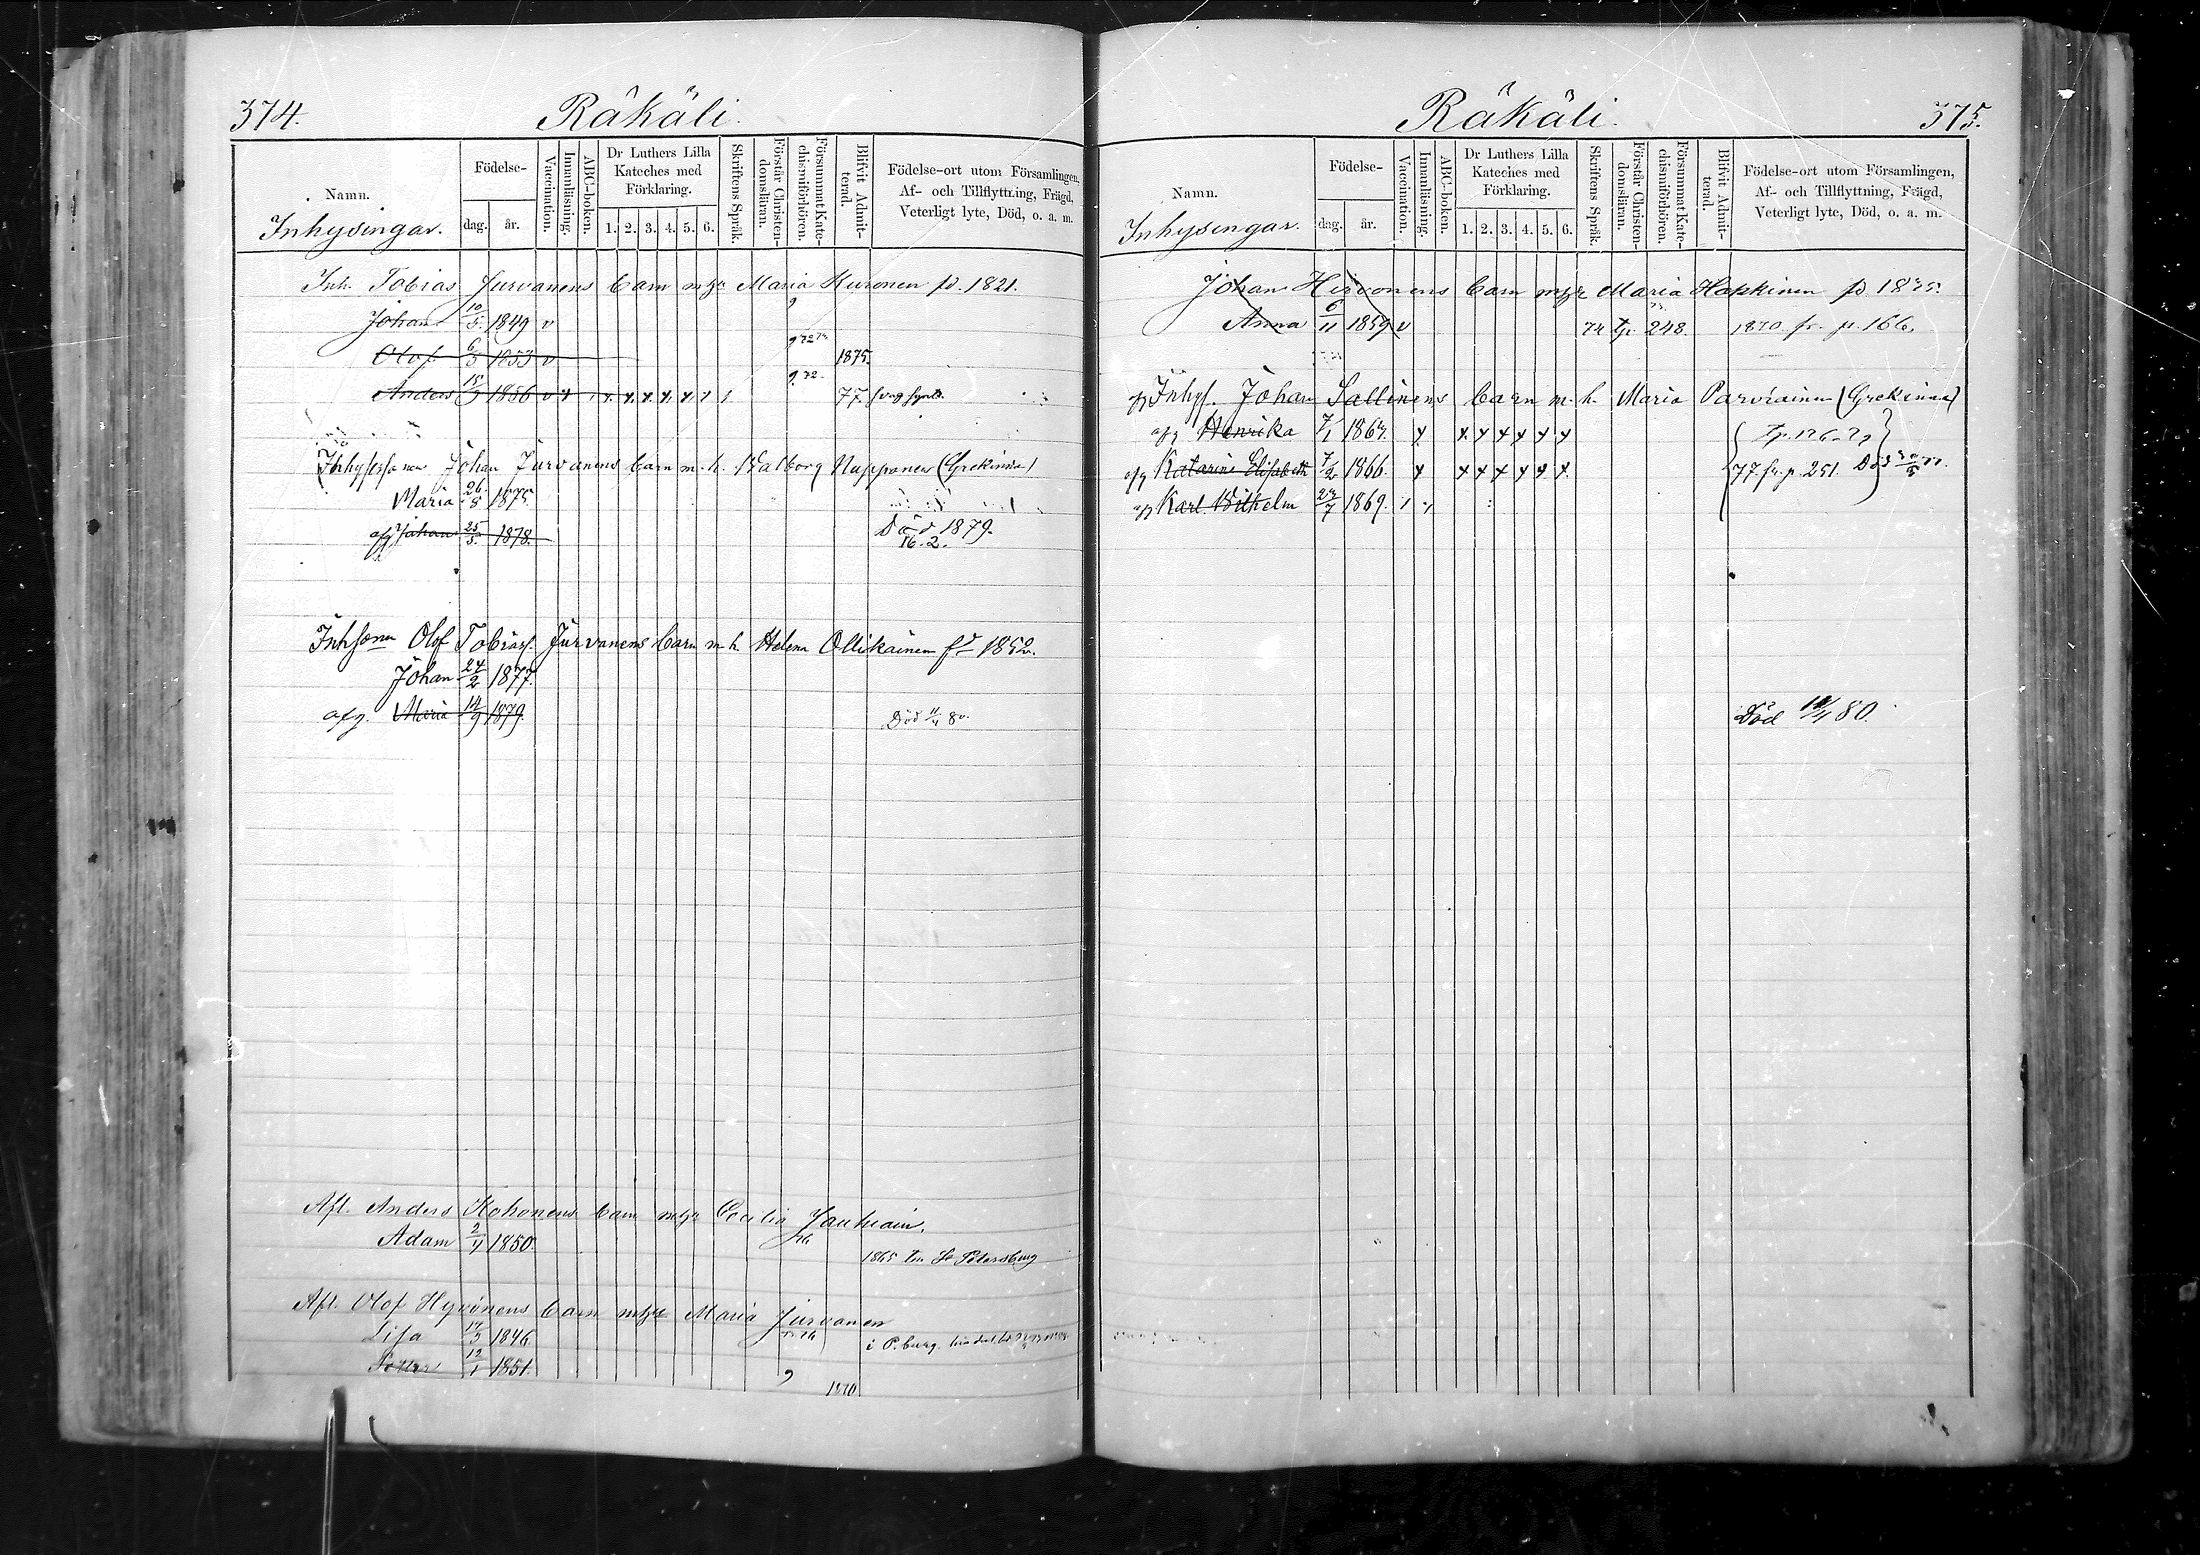 374.
Räkäli.
Namn.
Födelse-
dag. år.
Vaccination.
Innanläsning.
ABC-boken.
Dr Luthers Lilla Kateches med Förklaring.
1. 2. 3. 4. 5. 6.
Skriftens Språk.
Förstår Christendomsläran.
Försummat Katechismiförhören.
Blifvit Admitterad.
Födelse-ort utom Församlingen, Af- och Tillflyttning, Frägd, Veterligt lyte, Död, o. a. m.
Inhysingar.
Inh. Tobias Jurvanens barn m hu Maria Kuronen fd. 1821.
Johan 10/5 1849 v
Olof 6/3 1853 v 1875.
Anders 15/9 1856 v 77 svag synt.
Johan Jurvanens barn m. h. Walborg Nupponen (Grekinna)
Maria 26/8 1875.
afg Johan 25/5 1878. Död 1879. 16.2.
Inhsonen Olof Tobiasf. Jurvanens barn m h. Helena Ollikainen fd 1852.
Johan 24/2 1877.
afg. Maria 14/9 1879. Död 11/4 80.
Aft. Anders Kohonens barn m hu Cecilia
Adam 2/4 1850. 1865 St Petersburg
Aft. Olof Hyvönens barn m hu Maria Jurvanen
Lisa 17/3 1846. i P.burg
Petter 12/1 1851. 1870
Räkäli.
375.
Namn.
Födelse-
dag. år.
Vaccination.
Innanläsning.
ABC-boken.
Dr Luthers Lilla Kateches med Förklaring.
1. 2. 3. 4. 5. 6.
Skriftens Språk.
Förstår Christendomsläran.
Försummat Katechismiförhören.
Blifvit Admitterad.
Födelse-ort utom Församlingen, Af- och Tillflyttning, Frägd, Veterligt lyte, Död, o. a. m.
Inhysingar.
Johan Hirvonens barn m hu Maria Hakkinen fd. 1835.
Anna 6/11 1859 v 74 tp. 248. 1870. fr. p. 166.
Inhys. Johan Sallinens barn m. h. Maria Parviainen (Grekinna)
afg Henrika 7/1 1864.
afg Katarina Elisabeth 7/2 1866. 77 fr. p. 251.
afg Karl Wilhelm 27/7 1869.
Död 11/4 80.